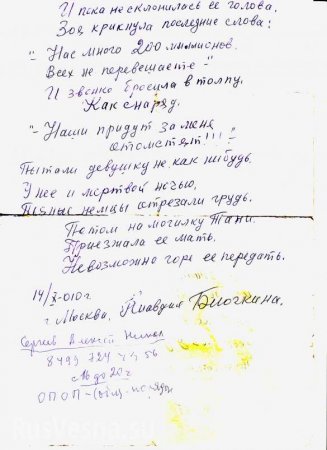 И пока не склонилась ее голова,
Зоя крикнула последние слова:
"- Нас много 200 миллионов.
Всех не перевешаете -"
И звонко бросила в толпу,
Как снаряд,
"- Наши придут за меня
отомстят!!!"
Пытали девушку не как нибудь.
У нее и мертвой ночью,
Пьяные немцы отрезали грудь.
Потом на могилку Тани.
Приезжала ее мать.
Невозможно горе ее передать.
14/X-010 г
г. Москва, Клавдия
Сергеев Алексей
8499 724
до 20 г
ОПОП -
RusVesna.su